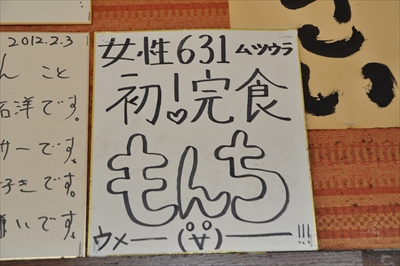 女性631 ムツウラ
初!♡完食
もんち
ウメー(°∀°)ー!!!
2012.2.3
ん こと
石洋です。
サーです。
子きです。
いです。
さい